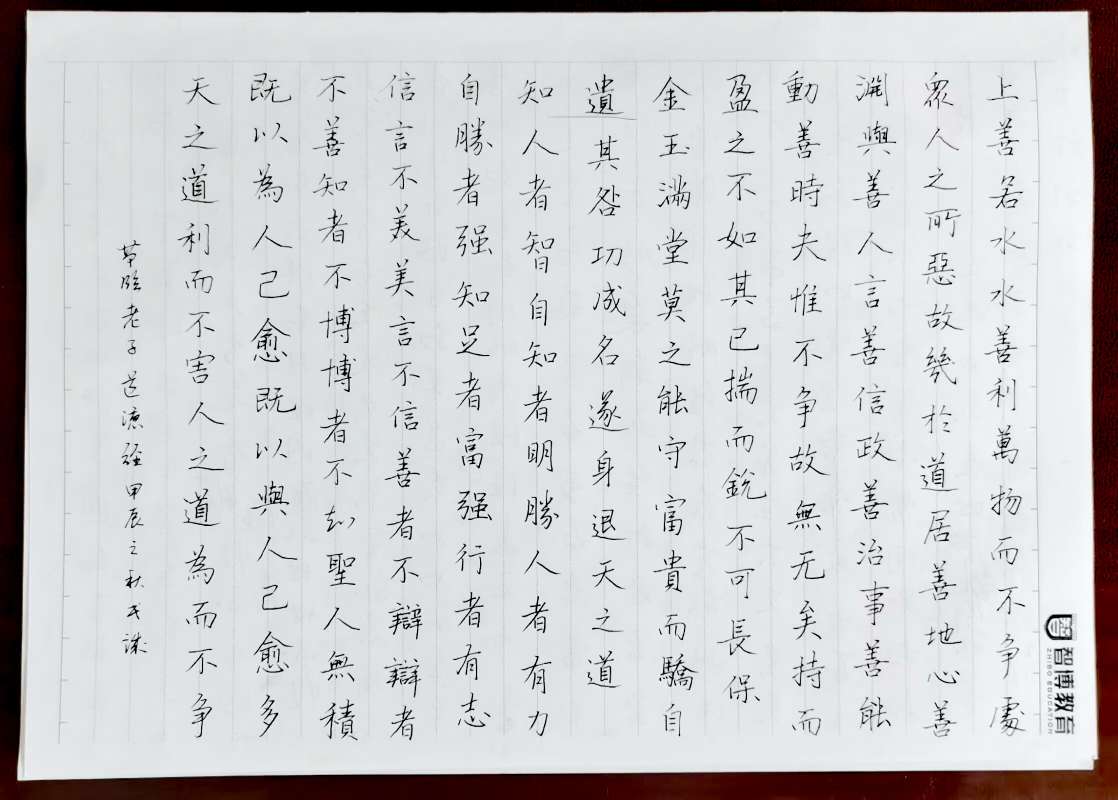 上善若水水善利萬物而不争處
衆人之所惡故幾於道居善地心善
淵與善人言善信政善治事善能
動善時夫惟不争故無无矣持而
盈之不如其已揣而銳不可長保
金玉滿堂莫之能守富貴而驕自
遺其咎功成名遂身退天之道
知人者智自知者明勝人者有力
自勝者强知足者富强行者有志
信言不美美言不信善者不辯辯者
不善知者不博博者不知聖人無積
既以為人己愈既以與人己愈多
天之道利而不害人之道為而不争
老子道德經甲辰之秋
智博教育
ZHIBO EDUCATION